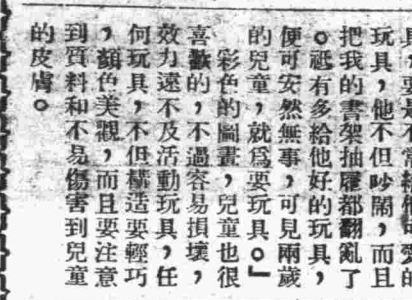 玩具，他不但吵鬧，而且
把我的書架抽屜都翻亂了
。祇有多給他好的玩具，
便可安然無事，可見兩歲
的兒童，就爲要玩具。」
彩色的圖畫，兒童也很
喜歡的，不過容易損壞，
效力遠不及活動玩具，任
何玩具，不但構造要輕巧
，顏色美觀，而且要注意
到質料和不易傷害到兒童
的皮膚。